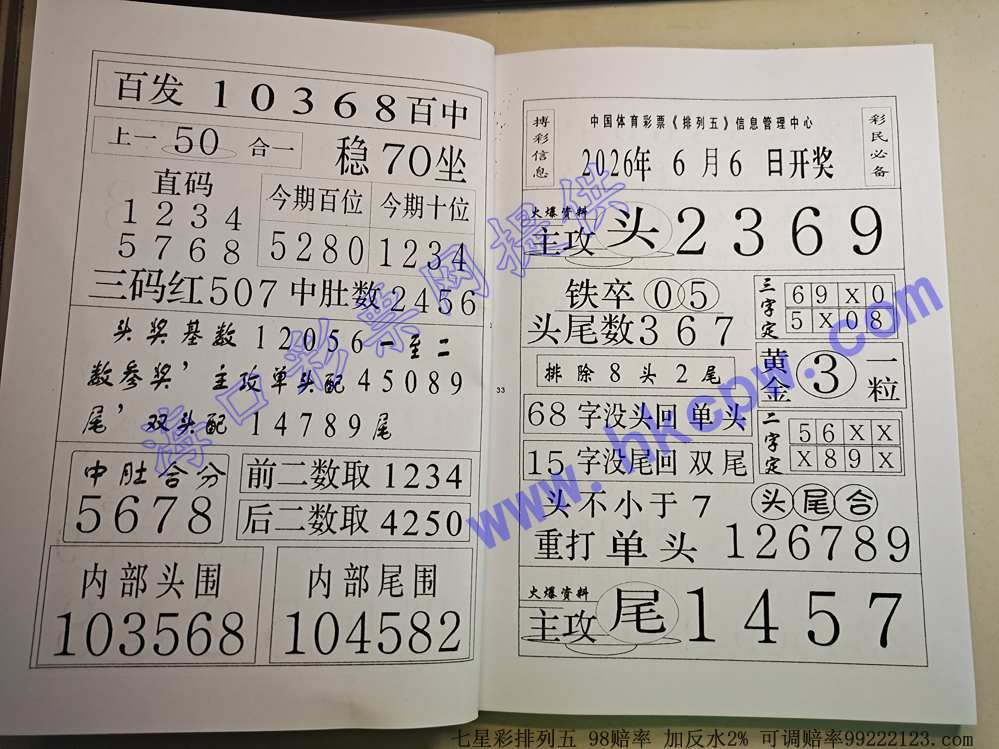 百发 10368 百中
上一 50 合一
稳 70 坐
直码
1 2 3 4
5 7 6 8
今期百位
5280
今期十位
1234
三码红507 中肚数2456
头奖基数12056一至二
数参奖，主攻单头配45089
尾，双头配14789尾
中肚合分
5678
前二数取 1234
后二数取 4250
内部头围
103568
内部尾围
104582
33
搏彩信息
中国体育彩票《排列五》信息管理中心
2026年 6月6 日开奖
彩民必备
火爆资料
主攻 头 2369
铁卒 0 5
头尾数367
排除8头2尾
三字定
6 9 X 0
5 X 0 8
黄金 3 一粒
68字没头回单头
15字没尾回双尾
二字定
5 6 X X
X 8 9 X
头不小于7
头尾合
重打单头 126789
火爆资料
主攻 尾 1457
海口彩票网提供
www.hkcpw.com
七星彩排列五 98赔率 加反水2% 可调赔率99222123.com